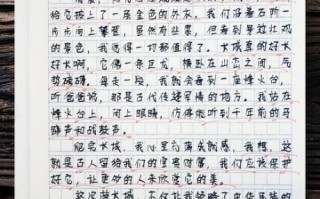 给它披上了一层金色的外衣。我们沿着石阶一
步步向上攀登，虽然有些累，但看到那壮观
的景色，我觉得一切都值得了。长城真的好长
好长啊，它像一条巨龙，横卧在山峦之间，气
势磅礴。每走一段，我就会看到一座烽火台，
听爸爸说，那是古代传递军情的地方。我站在
烽火台上，闭上眼睛，仿佛能听到千年前的马
蹄声和战鼓声。
爬完长城，我心里
就感。我想，这
就是古人留给我们的宝贵财富，我们应该保护
好它，让更多的人来欣赏它的美。
这次游长城，不仅让我领略了中华民族的